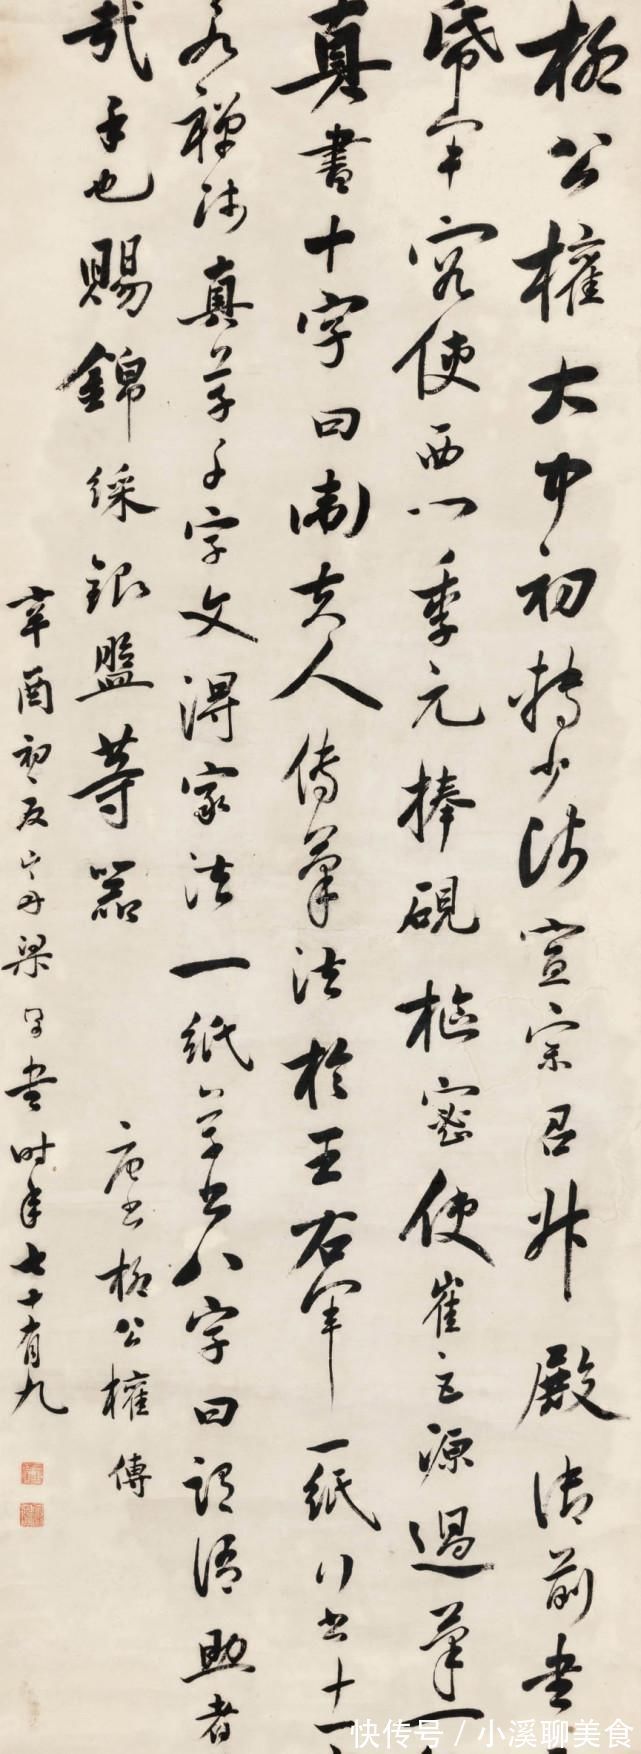 柳公權大中初轉少師宣宗召升殿御前書
帋軍容使西門季元捧硯樞密使崔巨源過筆一
真書十字曰衛夫人傳筆法於王右軍一紙行書十一
永禪師真草千字文得家法一紙草書八字曰謂語助者
哉乎也賜錦綵銀盤等器
唐書柳公權傳
辛酉初夏山舟梁同書時年七十有九
快传号/小溪聊美食